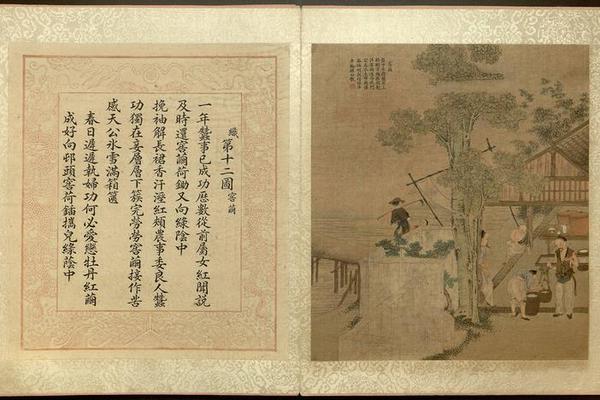 織第十二圖窖繭
一年蠶事已成功歷數從前屬女紅聞說
及時還窖繭荷鋤又向綠陰中
挽袖解長裙香汗溼紅頰農事委良人蠶
功獨在妾層層下簇完勞勞窖繭接作苦
感天公氷雪滿箱篋
春日遲遲執婦功何必愛戀牡丹紅繭
成好向邨頭窖荷鍤攜兒綠蔭中